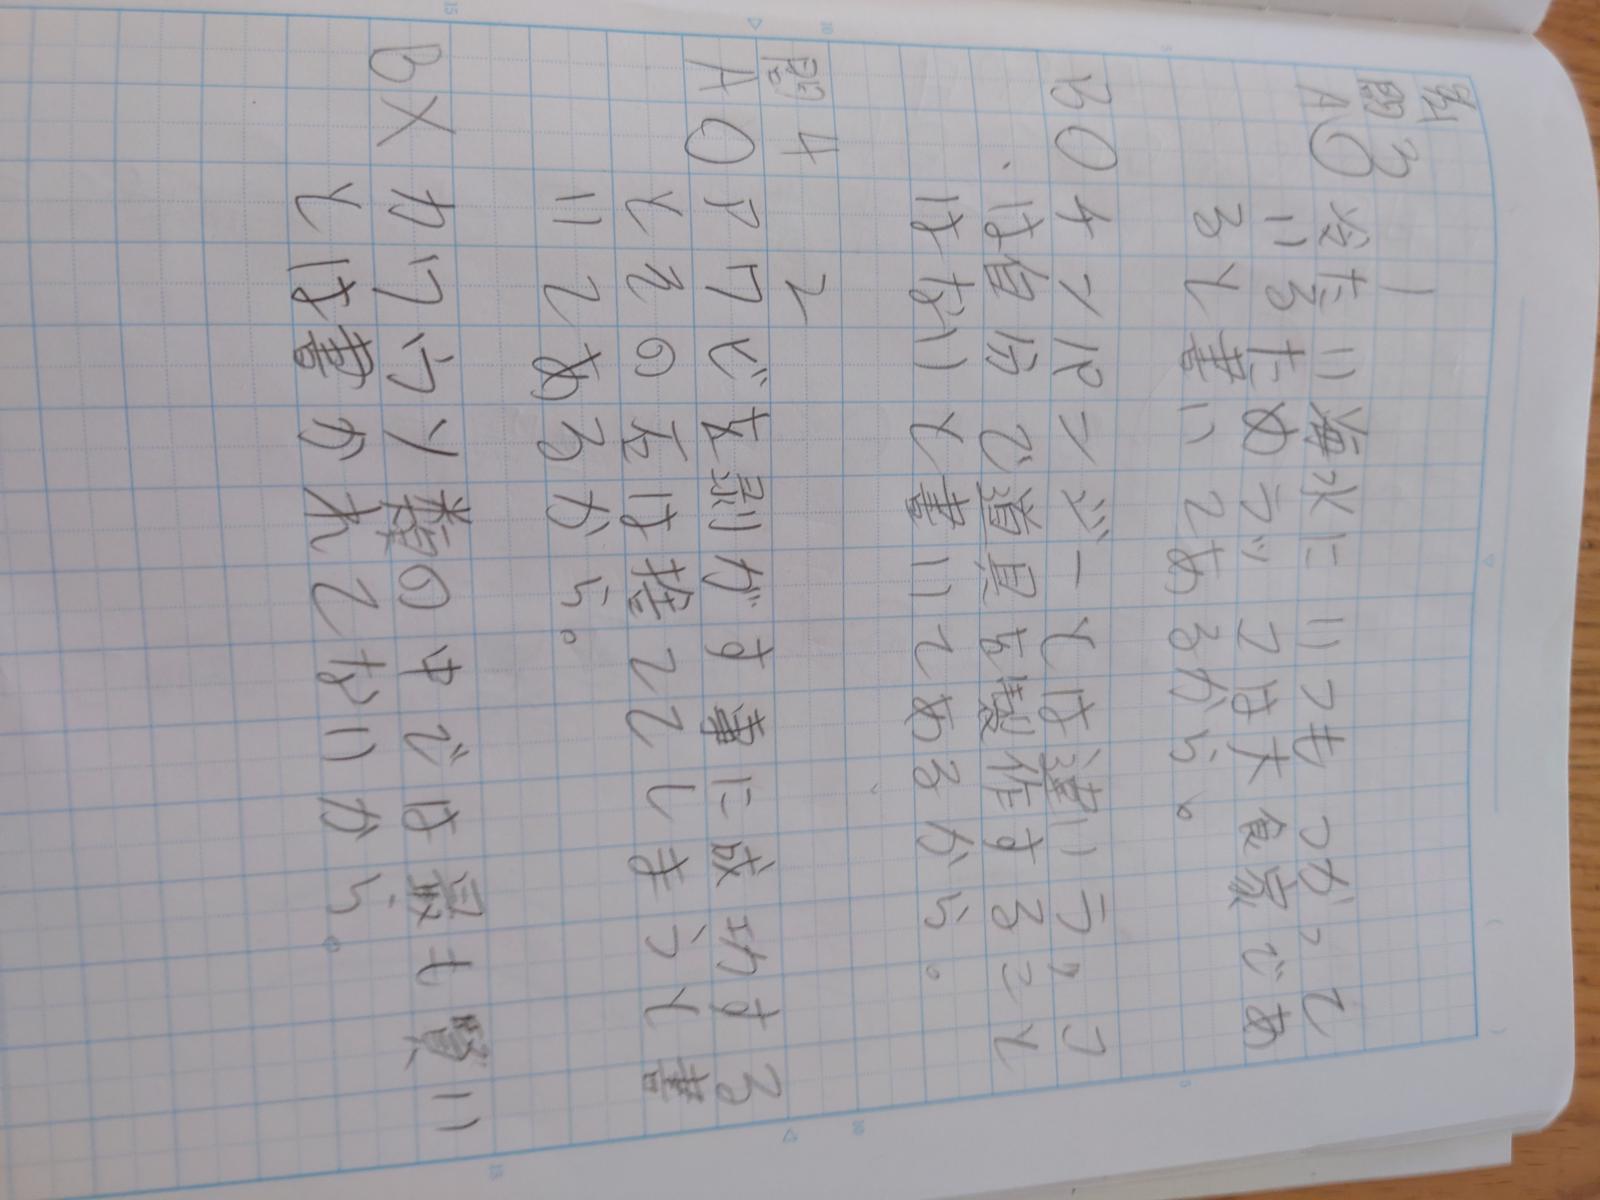 問3 1
A○ 冷たい海水にいつもつかって
いるためラッコは大食家であ
ると書いてあるから。
B○ チンパンジーとは違いラッコ
は自分で道具を製作すること
はないと書いてあるから。
問4 2
A○ アワビを剥がす事に成功する
とその石は捨ててしまうと書
いてあるから。
B× カワウソ類の中では最も賢い
とは書かれてないから。